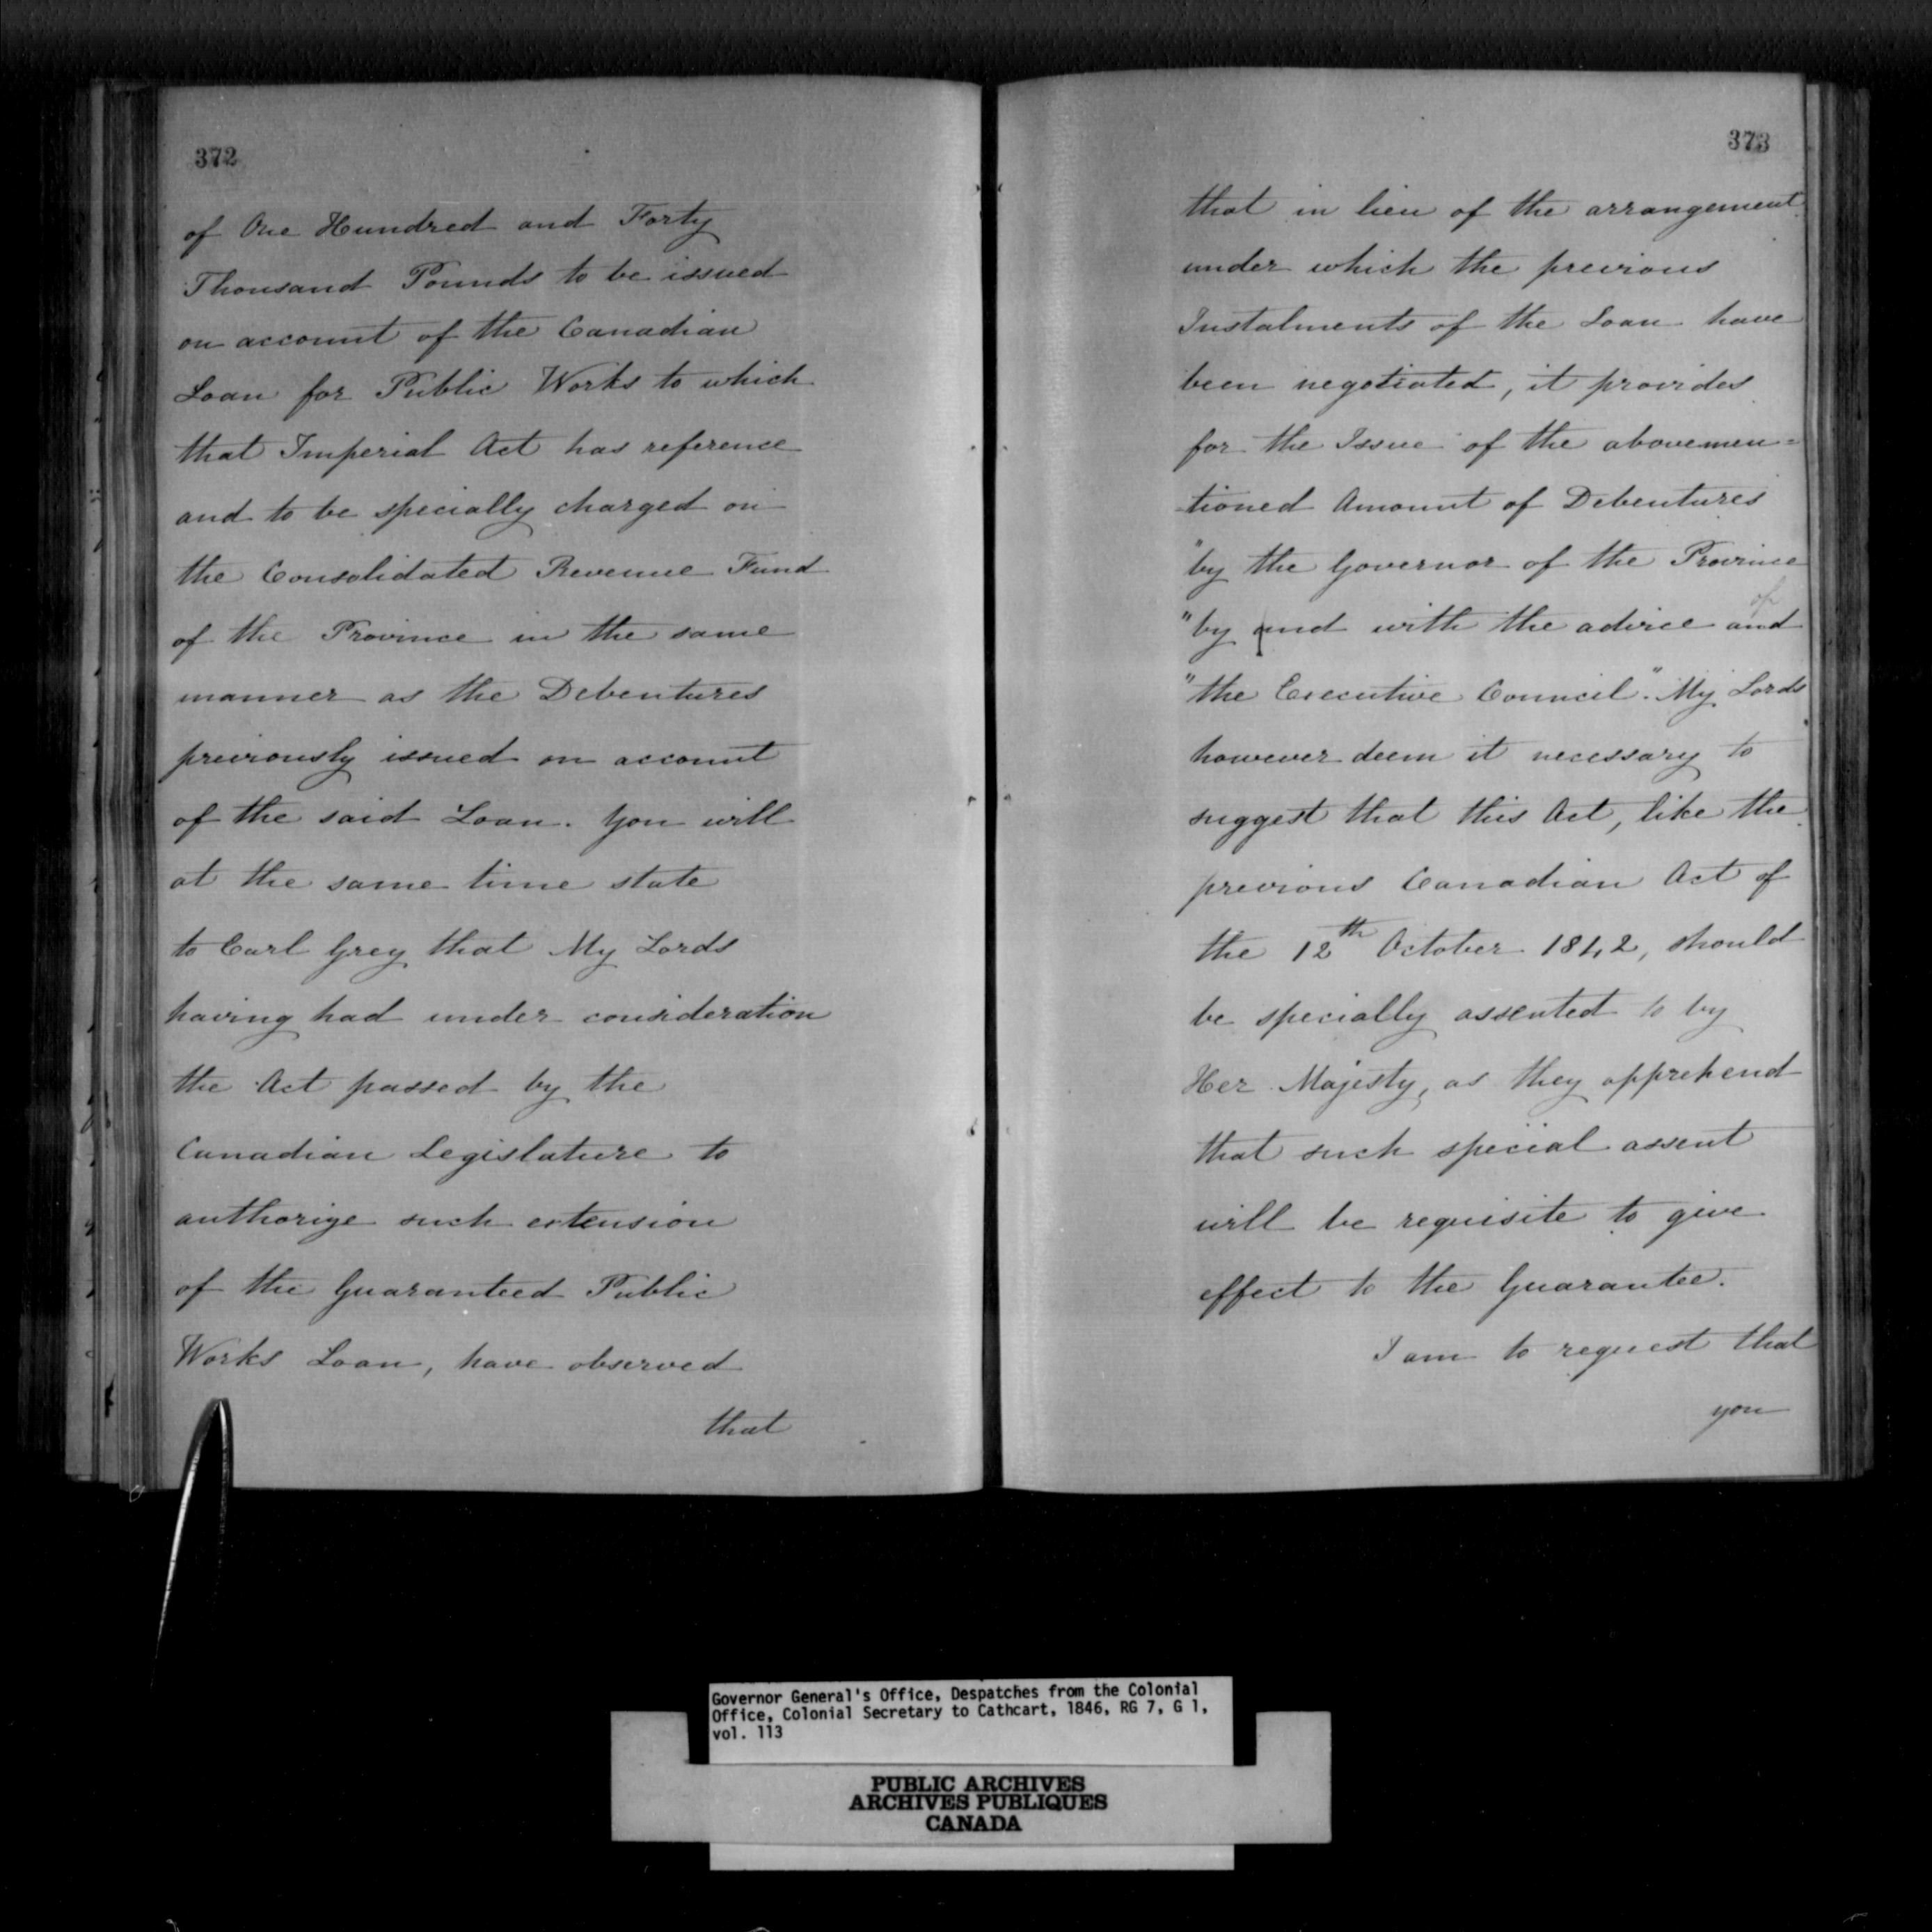 372
of One Hundred and Forty
Thousand Pounds to be issued
on account of the Canadian
Loan for Public Works to which
that Imperial Act has reference
and to be specially charged on
the Consolidated Revenue Fund
of the Province in the same
manner as the Debentures
previously issued on account
of the said Loan. You will
at the same time state
to Earl Grey that My Lords
having had under consideration
the Act passed by the
Canadian Legislature to
authorize such extension
of the Guaranteed Public
Works Loan, have observed
that
373
that in lieu of the arrangement
under which the previous
Instalments of the Loan have
been negotiated, it provides
for the Issue of the abovemen=
=tioned Amount of Debentures
"by the Governor of the Province
"by and with the advice and of
"the Executive Council". My Lords
however deem it necessary to
suggest that this Act, like the
previous Canadian Act of
the 12th October 1842, should
be specially assented to by
Her Majesty, as they apprehend
that such special assent
will be requisite to give
effect to the Guarantee.
I am to request that
you
Governor General's Office, Despatches from the Colonial
Office, Colonial Secretary to Cathcart, 1846, RG 7, G 1,
vol. 113
PUBLIC ARCHIVES
ARCHIVES PUBLIQUES
CANADA